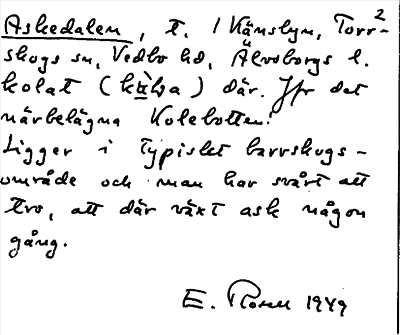 Askedalen, t. / Känslyn, Torr-2
skogs sn, Vedbo hd, Älvsborgs l.
kolat (           ) där. Jfr det
närbelägna Kolebotten!
Ligger i typiskt barrskogs-
område och man har svårt att
tro, att där växt ask någon
gång.
E.          1949